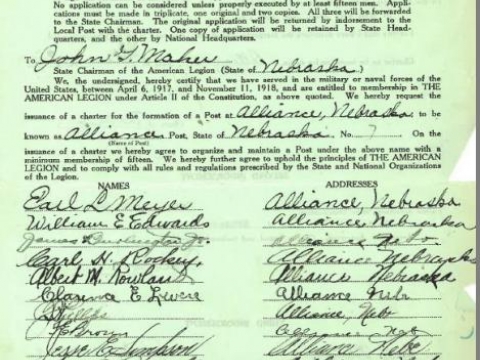 No application can be considered unless properly executed by at least fifteen men. Appli-
cations must be made in triplicate, one original and two copies. All three will be forwarded
to the State Chairman. The original application will be returned by indorsement to the
Local Post with charter. One copy of application will be retained by State Head-
quarters, and the other by National Headquarters.
To John G. Maher
State Chairman of the American Legion (State of Nebraska)
We, the undersigned, hereby certify that we have served in the military or naval forces of the
United States, between April 6, 1917, and November 11, 1918, and are entitled to membership in THE
AMERICAN LEGION under Article II of the Constitution, as above quoted. We hereby request
issuance of charter for the formation of a Post at Alliance, Nebraska to be
known as Alliance Post, State of Nebraska No. 7 On the
(Name of Post)
issuance of a charter we hereby agree to organize and maintain a Post under the above name with a
minimum membership of fifteen. We hereby further agree to uphold the principles of THE AMERICAN
LEGION and to comply with all rules and regulations prescribed by the State and National Organizations
of the Legion.
NAMES ADDRESSES
Earl L. Meyer Alliance, Nebraska
William E Edwards Alliance Nebraska
James Jr. Alliance
Carl H. Alliance Nebraska
Albert W. Rowland Alliance Nebraska
Clarence E. Alliance Nebr
Phillips Alliance, Nebr
Brown
Jesse E. Simpson Alliance Nebr